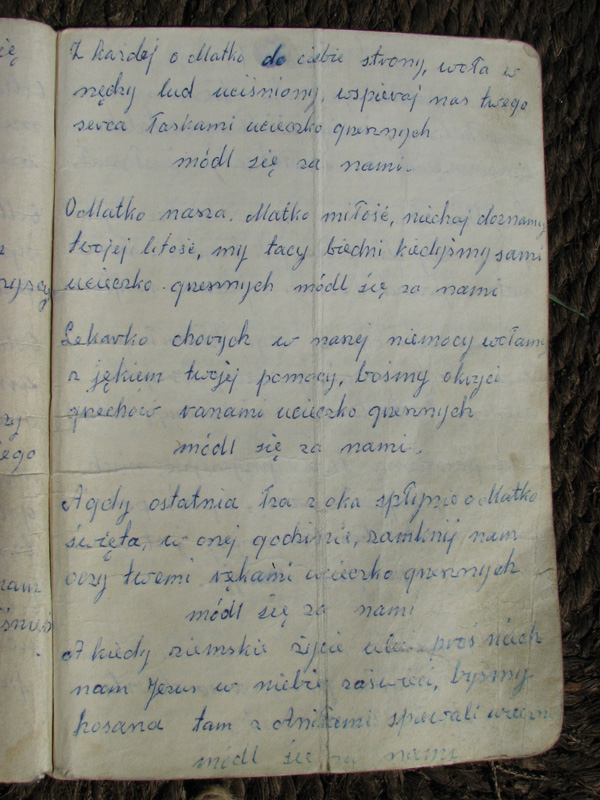 Z kardej o Matko do ciebie strony, woła w
nędzy lud uciśniony, wspieraj nas twego
serca łaskami ucieczko grzesznych
módl się za nami.
O Matko nasza. Matko miłość, niechaj doznamy
twojej litość, my tacy biedni kiedyśmy sami
ucieczko grzesznych módl się za nami
Lekarko chorych w naszej niemocy wołamy
z jękiem twojej pomocy, bośmy okryci
grzechów ranami ucieczko grzesznych
módl się za nami.
A gdy ostatnia łza z oka spłynie o Matko
święta, w onej godzinie, zamknij nam
oczy twemi rękami ucieczko grzesznych
módl się za nami
A kiedy ziemskie życie proś niech
nam Jezus w niebie zaświeci, byśmy
hosana tam z Aniołami śpiewali
módl się za nami